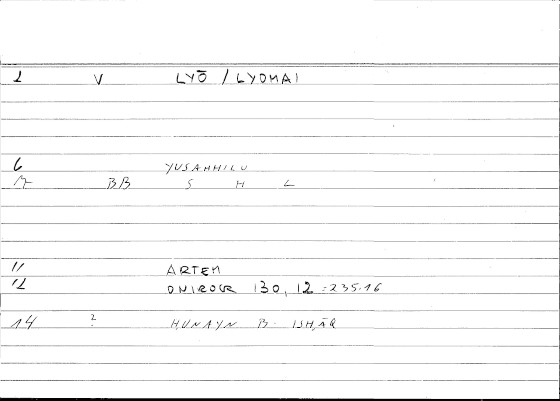 1 V LYŌ / LYOMAI
6 YUSAHHILU
BB S H L
11 ARTEM
12 ONIROCR 130, 12 = 235.16
14 ? HUNAYN B. ISḤĀQ